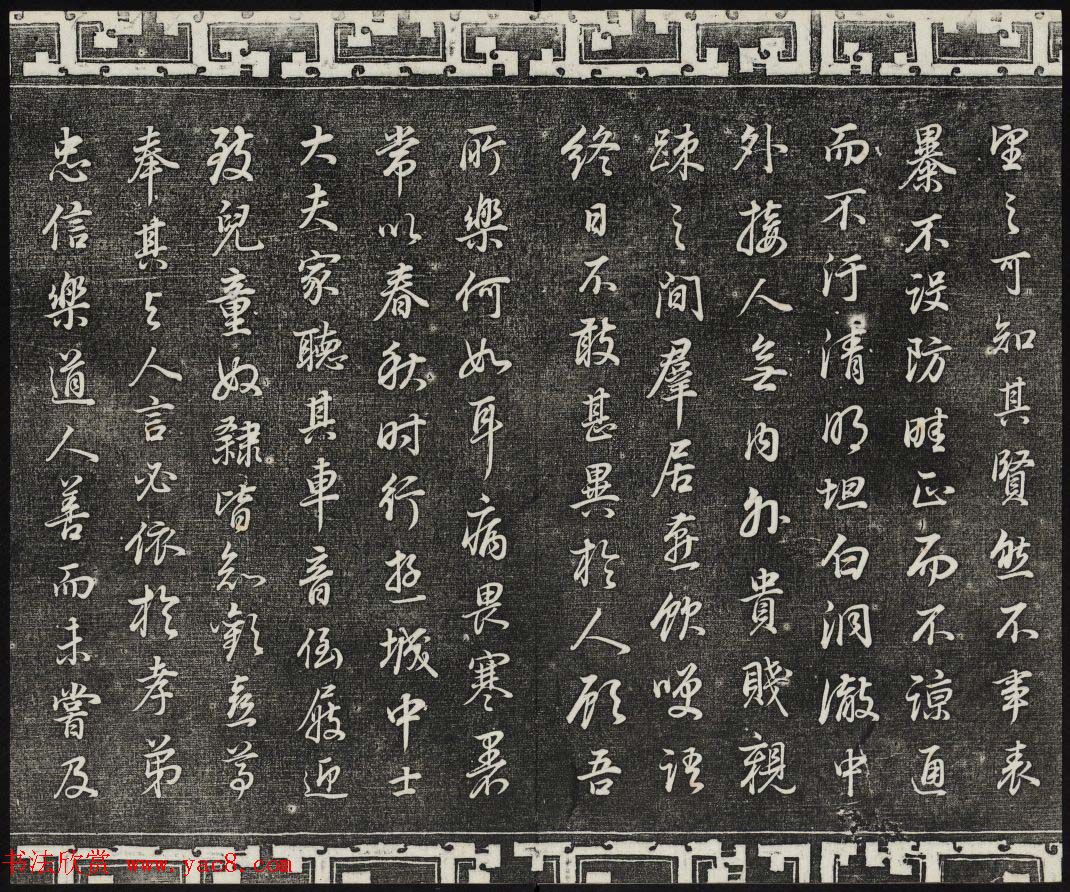 望之可知其賢然不事表
暴不設防畦正而不諒通
而不汙清明坦白洞徹中
外接人無內外貴賤親
踈之間羣居燕飲哽語
終日不敢甚異於人顧吾
所樂何如耳病畏寒暑
常以春秋時行遊城中士
大夫家聽其車音倒屐迎
致兒童奴隸皆知歡喜尊
奉其與人言必依於孝弟
忠信樂道人善而未嘗及
书法欣赏 www.yac8.com